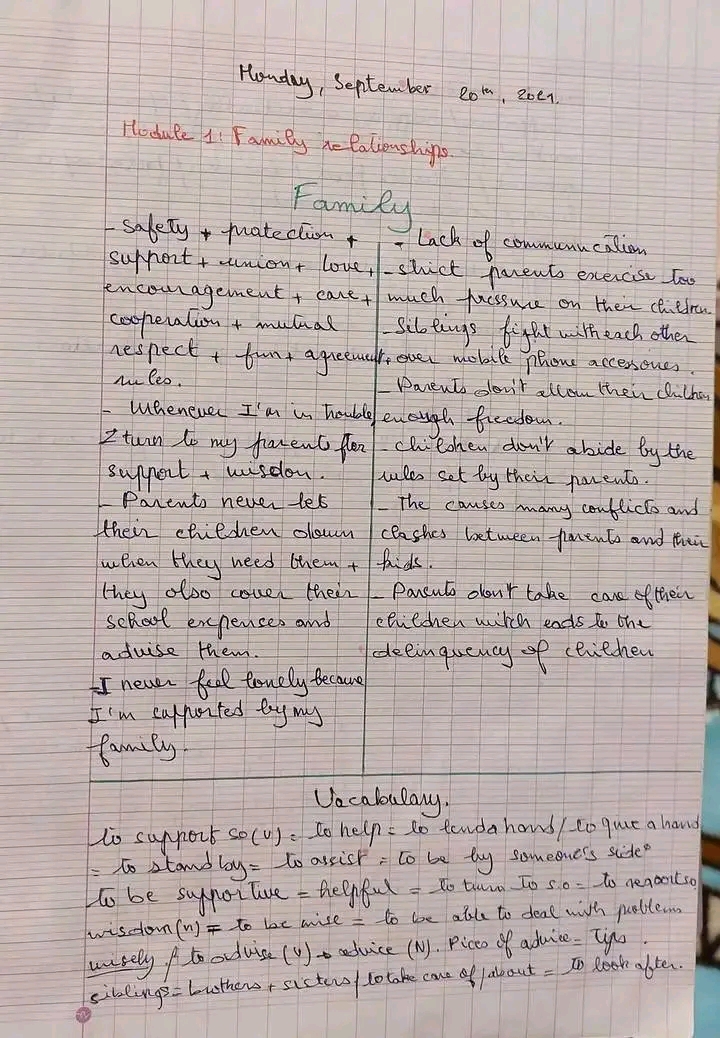 Monday, September 20th, 2021.
Module 1: Family relationships.
Family
- Safety + protection +
support + union + love +
encouragement + care +
cooperation + mutual
respect + fun + agreement +
rules.
- Whenever I'm in trouble
I turn to my parents for
support + wisdom.
- Parents never let
their children down
when they need them +
they also cover their
school expences and
advise them.
- I never feel lonely because
I'm supported by my
family.
- Lack of communication
- strict parents exercise too
much pressure on their children
- Siblings fight with each other
over mobile phone accessories.
- Parents don't allow their children
enough freedom.
- children don't abide by the
rules set by their parents.
- The causes many conflicts and
clashes between parents and their
kids.
- Parents don't take care of their
children witch eads to the
delinquency of children
Vocabulary.
to support so (v) = to help = to lend a hand / to give a hand
= to stand by = to assist = to be by someone's side
to be supportive = helpful = to turn to s.o = to so
wisdom (n) = to be wise = to be able to deal with problems
wisely / to advise (v) → advice (N). Pices of advice = Tips.
siblings = brothers + sisters / to take care of / about = to look after.